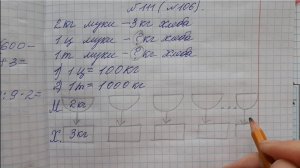 № 111 (№ 106)
2 кг муки – 3 кг хлеба
1 ц муки – ? кг хлеба
1 т муки – ? кг хлеба
1) 1 ц = 100 кг
2) 1 т = 1000 кг
М. 2 кг
Х. 3 кг
600 –
+ 3 =
: 9 · 2 =